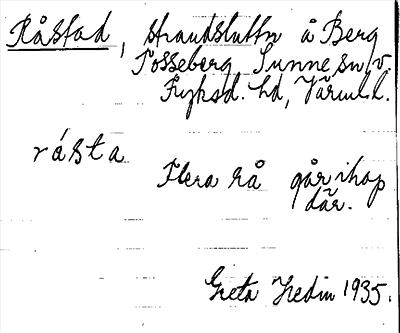 Råstad, strandsluttn å Berg
Posseberg Sunne sn, v.
Fryksd. hd, Värml. l.
råsta
Flera rå går ihop
där.
Greta Hedin 1935.